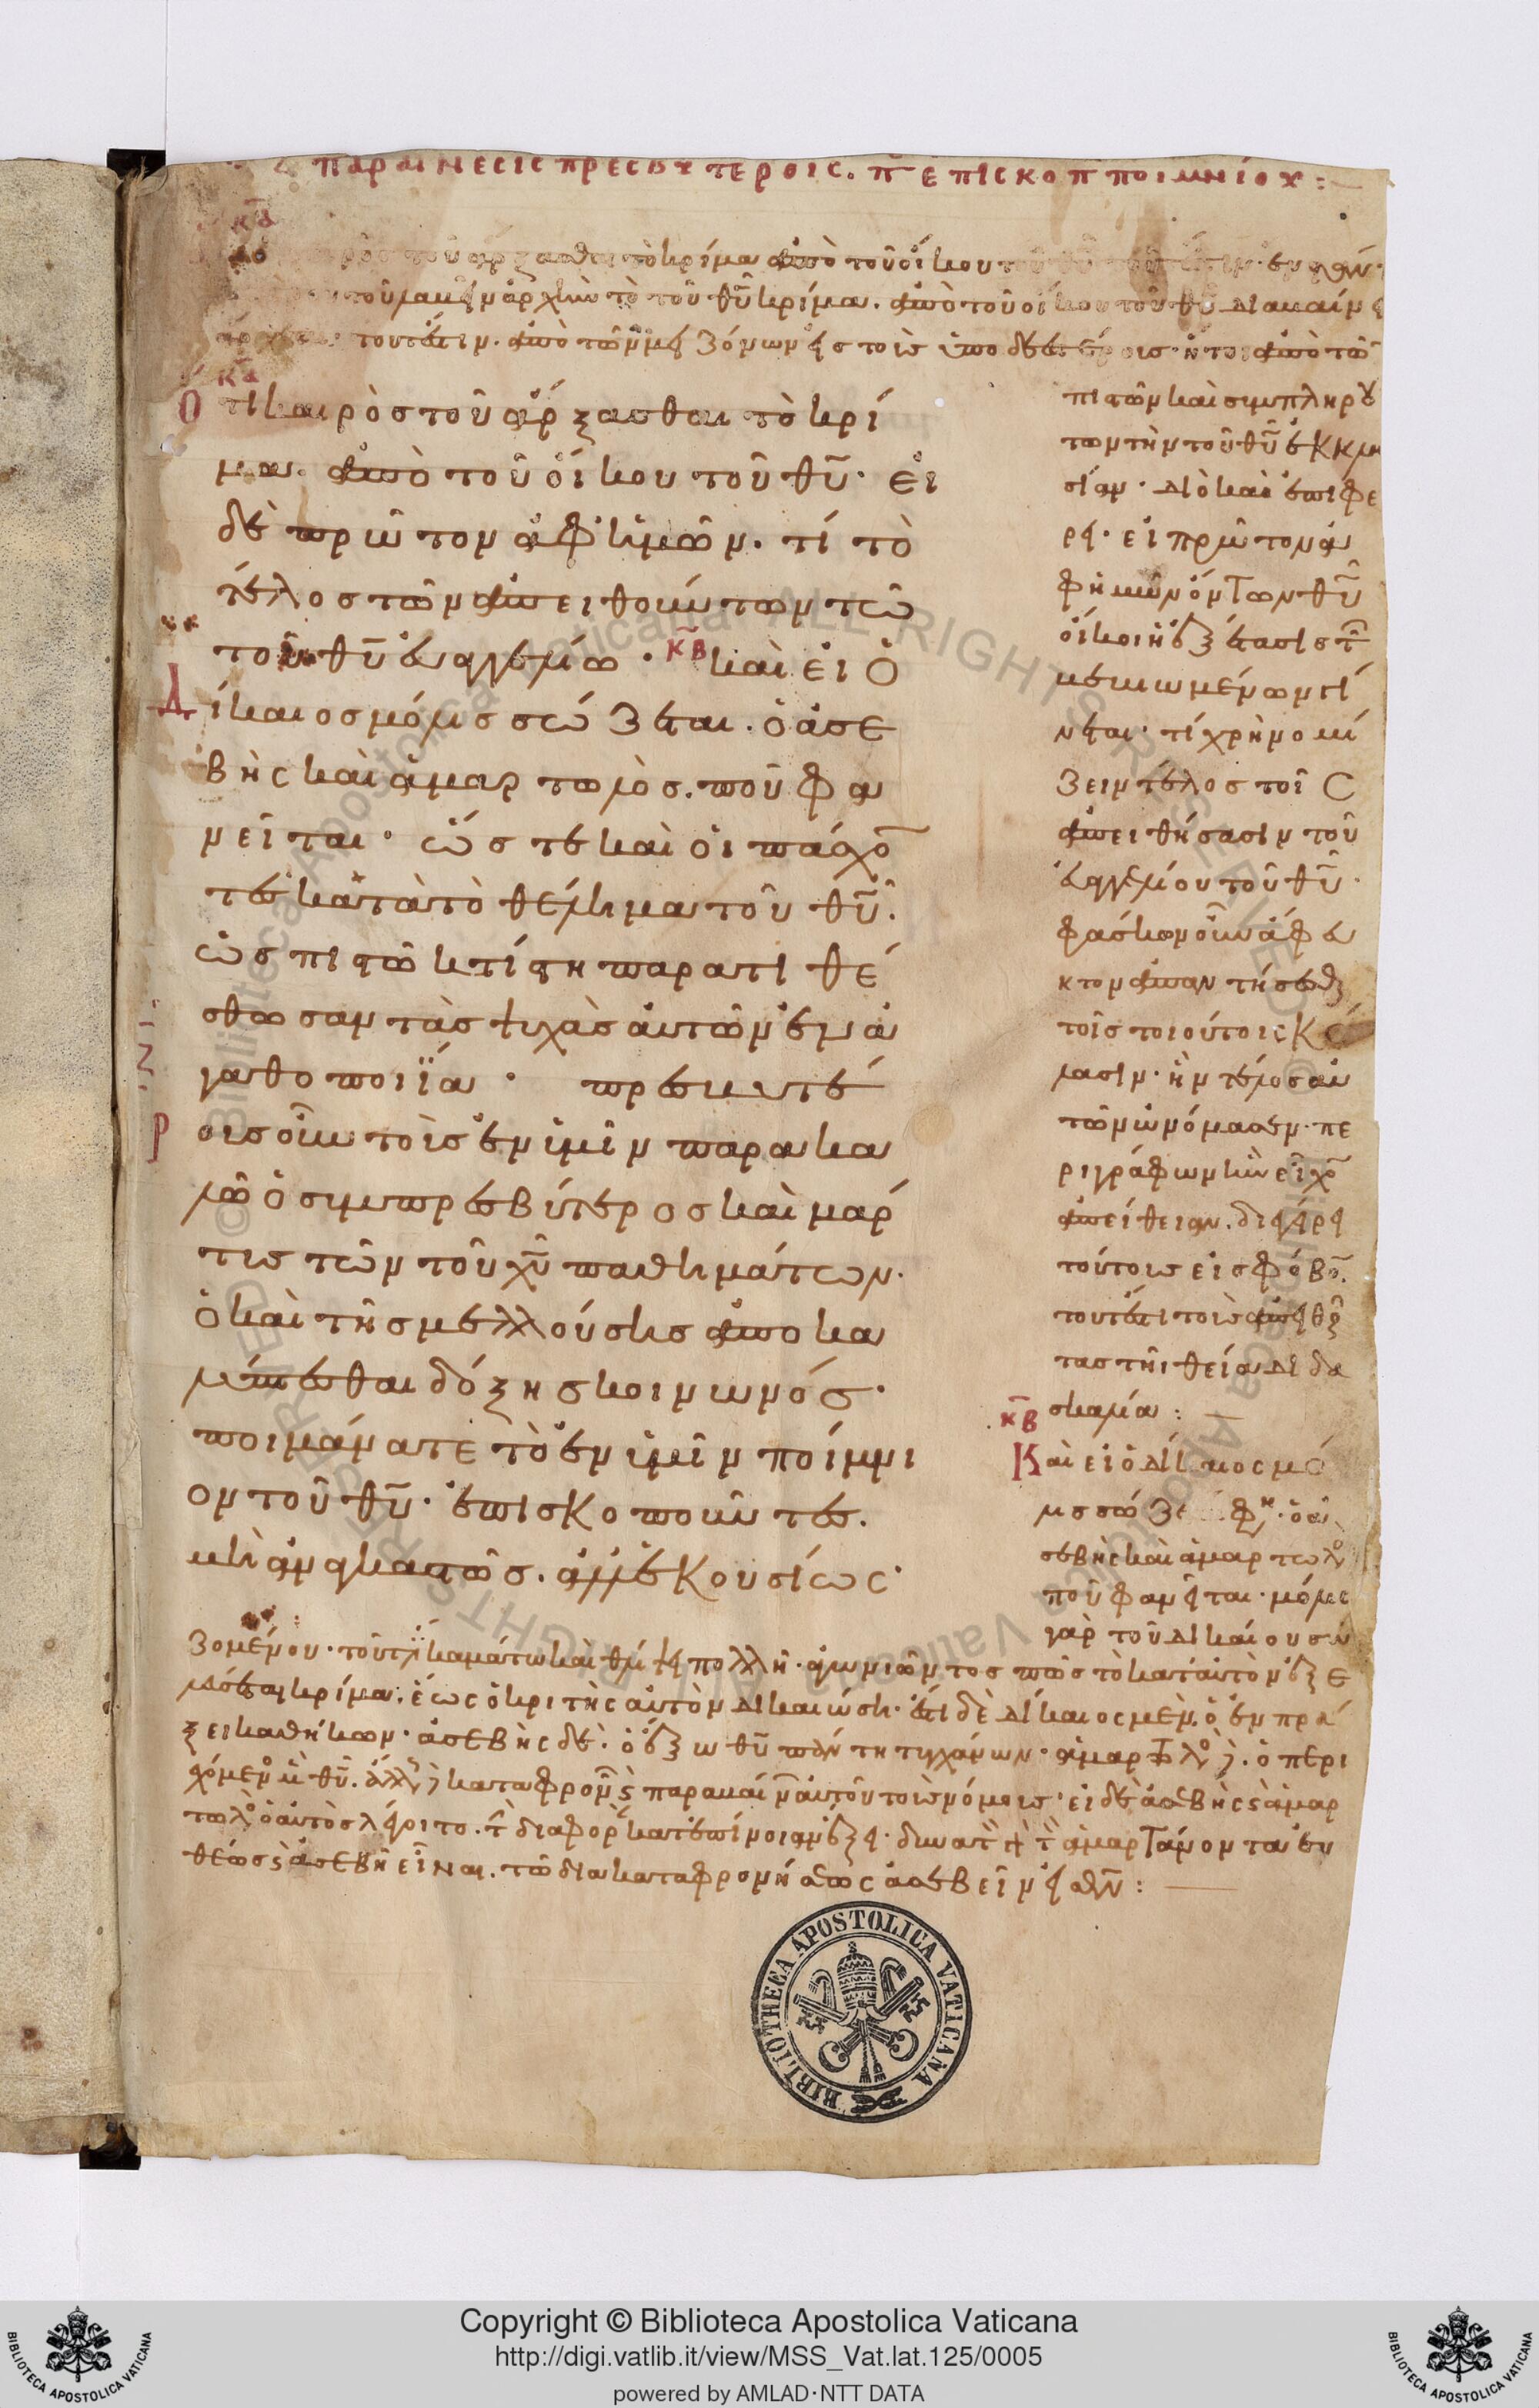 παραινεσις πρεσβυτεροις. π̅ επισκοπ ποιμνίου :
κα
τοῦ ἄρξασθαι τὸ κρίμα ἀπὸ τοῦ οἴκου
ἀρχὴν τὸ τοῦ θῦ κρίμα. ἀπὸ τοῦ οἴκου τοῦ θῦ
τουτέστιν. ἀπὸ τῶν
κα
Ὅτι καιρὸς τοῦ ἄρξασθαι τὸ κρί
μα. ἀπὸ τοῦ οἴκου τοῦ θῦ· εἰ
δὲ πρῶτον ἀφ ἡμῶν. τί τὸ
τέλος τῶν ἀπειθούντων τῶ
τοῦ θῦ εὐαγγελίω · κβ καὶ εἰ ὁ
Δίκαιος μόλις σώζεται. ὁ ἀσε
βὴς καὶ ἁμαρτωλὸς. ποῦ φα
νεῖται· ὥστε καὶ οἱ πάσχο
τες κατὰ τὸ θέλημα τοῦ θῦ.
ὡς πιστῶ κτίστη παρατιθέ
σθωσαν τὰς ψυχὰς αὐτῶν ἐν ἀ
γαθοποιΐα · πρεσβυτέ
Ροις οὖν τοῖς ἐν ὑμῖν παρακα
λῶ ὁ συμπρεσβύτερος καὶ μάρ
τυς τῶν τοῦ χῦ παθημάτων.
ὁ καὶ τῆς μελλούσης ἀποκα
λύπτεσθαι δόξης κοινωνός·
ποιμάνατε τὸ ἐν ὑμῖν ποίμνι
ον τοῦ θῦ· ἐπισκοποῦντες.
μὴ ἀναγκαστῶς. ἀλλ ἑκουσίως·
πιστῶν καὶ συμπληρού
των τὴν τοῦ θῦ ἐκκλη
σίαν· διὸ καὶ ἐπιφέ
ρει· εἰ πρῶτον ἀ
φ ἡμῶν ὄντων θῦ
οἴκοι ἡ ἐξέτασις
γίνεται· τί χρὴ νομί
ζειν τέλος τοῖς
ἀπειθήσασιν τοῦ
εὐαγγελίου τοῦ θῦ·
φάσκων οὖν ἄφευ
κτον
τοῖς τοιούτοις κό
λασιν· ἣν τέλος αὐ
τῶν ὠνόμασεν· πε
ριγράφων ἣν εἶχο
ἀπείθειαν. διεγείρει
τούτοις εἰς φόβον.
τουτέστι τοὺς ἀπειθή
τας τῆι θεία διδα
κβ σκαλία : —
Καὶ εἰ ὁ δίκαιος μό
λις σώζε φη· ὁ ἀ
σεβὴς καὶ ἁμαρτωλὸ
ποῦ φανεῖται· μόλις
γὰρ τοῦ δικαίου σω
ζομένου· καμάτω καὶ θλίψει πολλῆ· ἀγωνιῶντος πῶς τὸ κατ αὐτὸν ἐξε
λεύσεται κρίμα. ἕως ὁ κριτὴς αὐτὸν δικαιώση· ἔτι δὲ δίκαιος μὲν. ὁ ἐν πρά
ξει καθήκων· ἀσεβὴς δὲ. ὁ ἔξω θῦ πάντη τυγχάνων· ἁμαρτωλὸ . ὁ περι
καταφρον παρακαί αὐτοῦ τοῖς νόμοις· εἰ δὲ ἀσεβὴς ἁμαρ
τωλὸ ὁ αὐτὸς λέγοιτο. διαφορ κατ ἐπίνοιαν ἕξει· δυνατ ἁμαρτάνοντα εὐ
θέως ἀσεβῆ εἶναι. τῶ διὰ καταφρονήσεως ἀσεβεῖν : —
BIBLIOTHECA APOSTOLICA VATICANA
Copyright © Biblioteca Apostolica Vaticana
http://digi.vatlib.it/view/MSS_Vat.lat.125/0005
powered by AMLAD·NTT DATA
BIBLIOTECA APOSTOLICA VATICANA
BIBLIOTECA APOSTOLICA VATICANA